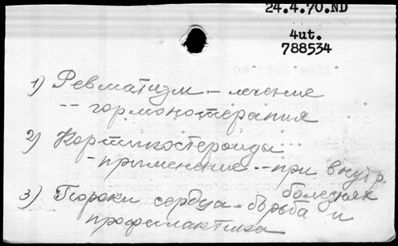 24.4.70.ND
4ut.
788534
1) Ревматизм - лечение
-- гормонотерапия
2) Кортикостероиды
- применение -- при внутр.
болезнях
3) Пороки сердца - борьба и
профилактика